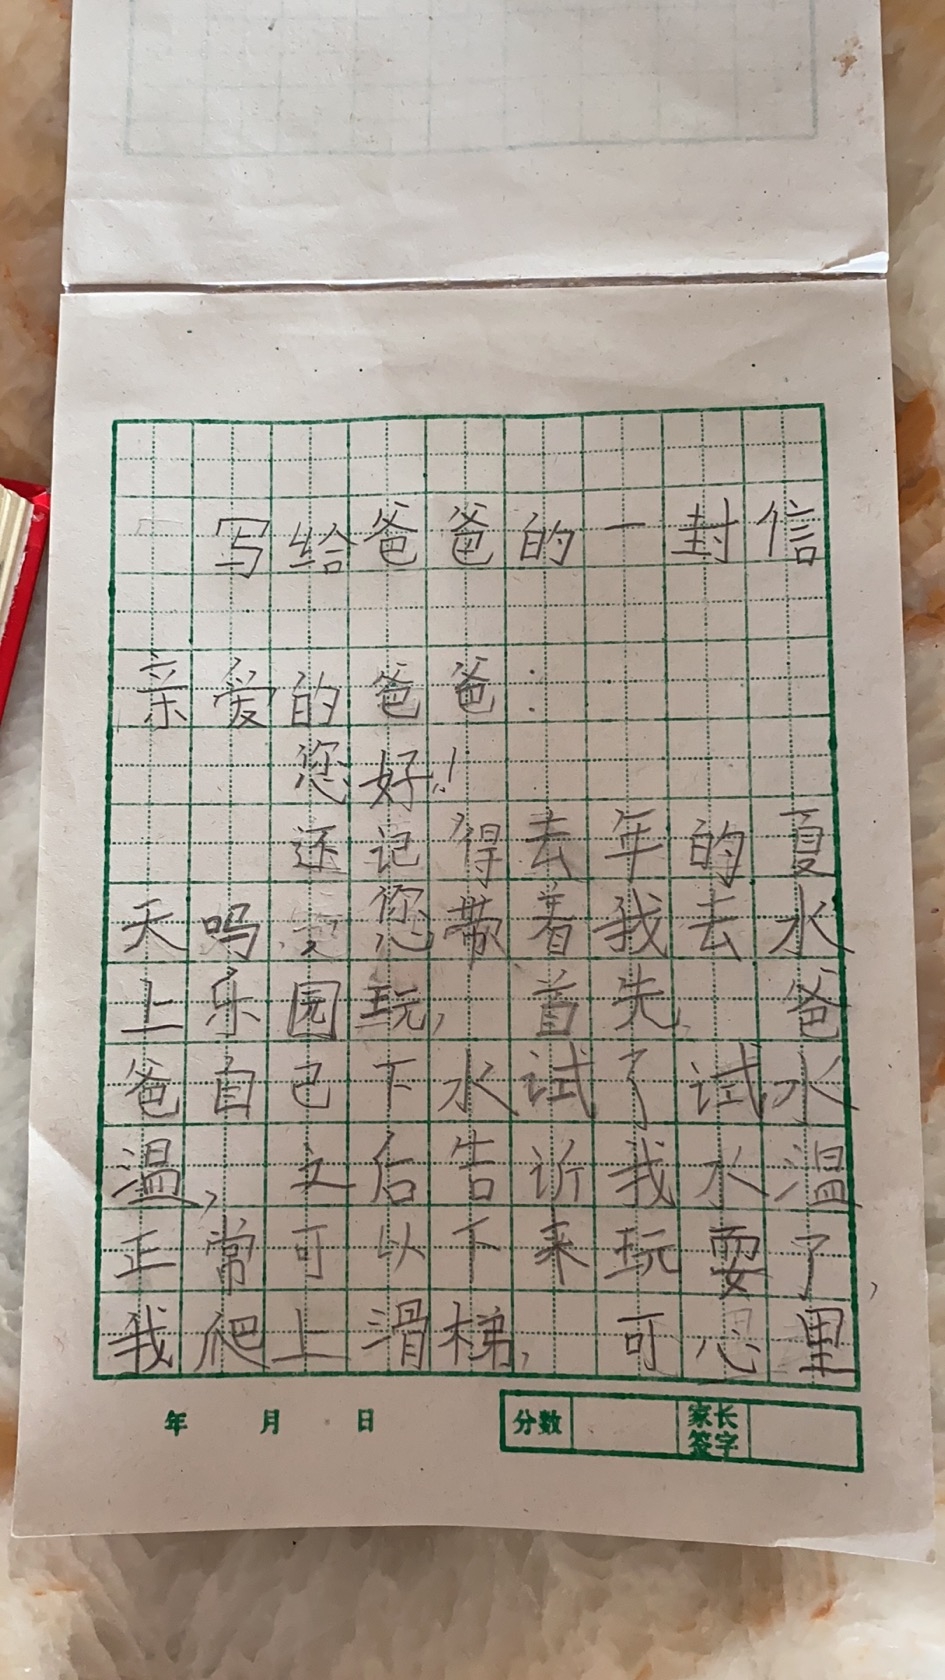 写给爸爸的一封信
亲爱的爸爸：
您好！
还记得去年的夏
天吗 您带着我去水
上乐园玩，首先，爸
爸自己下水试了试水
温，之后告诉我水温
正常可以下来玩耍了，
我爬上滑梯，可心里
年 月 日 分数 家长签字